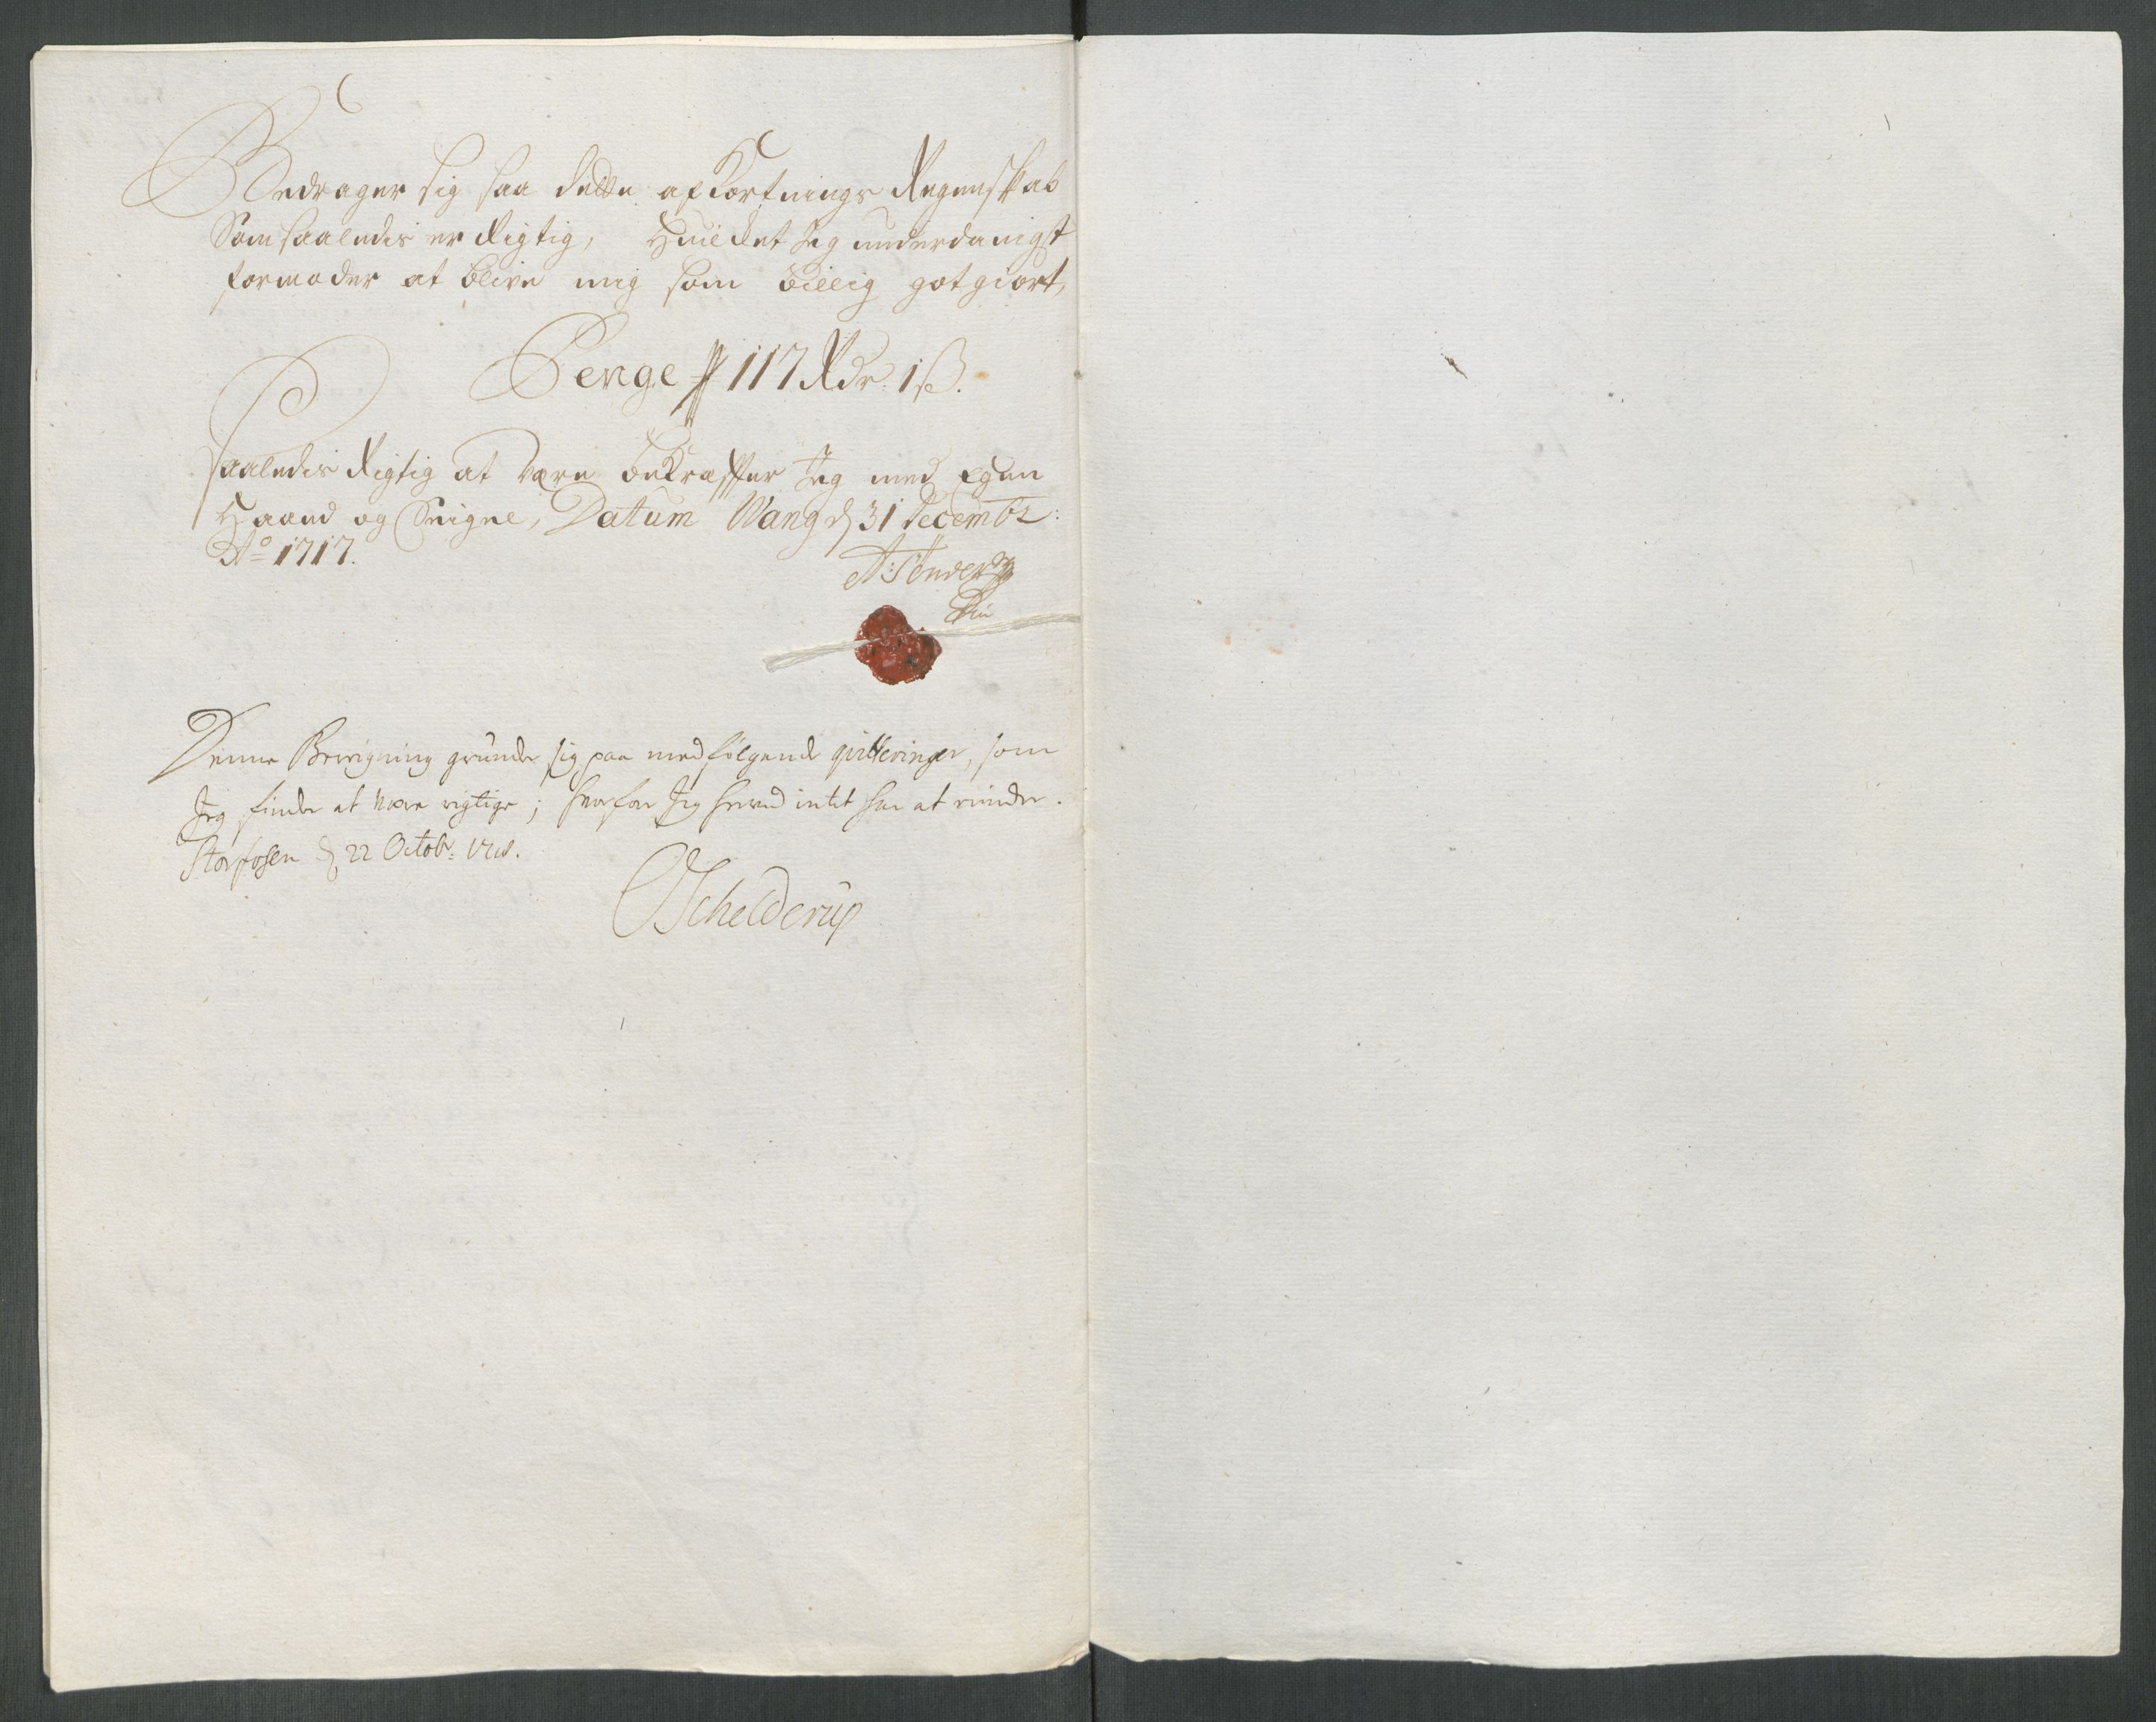 Bedrager sig saa dette afkortnings Regenskab
Som saaledis er Rigtig, Huilcket Jeg underdanigst
formoder at blive mig som billig got giort,
Penge 117 Rdr: 1 ß.
Saaledis Rigtig at være bekræffter Jeg med Egen
Haand og Seigne, Datum Wang d 31 Decembr:
Ao 1717.
Denne Bereigning grunder sig paa medfølgende qvitteringer, som
Jeg finder at være rigtige; hvorfor Jeg herved intet har at minder.
Storfosen d 22 Octobr: 1718.
Schelderup